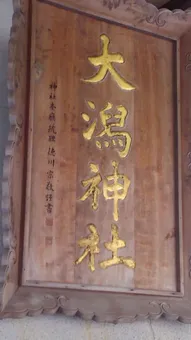 大潟神社
神社本庁統理 徳川宗敬謹書